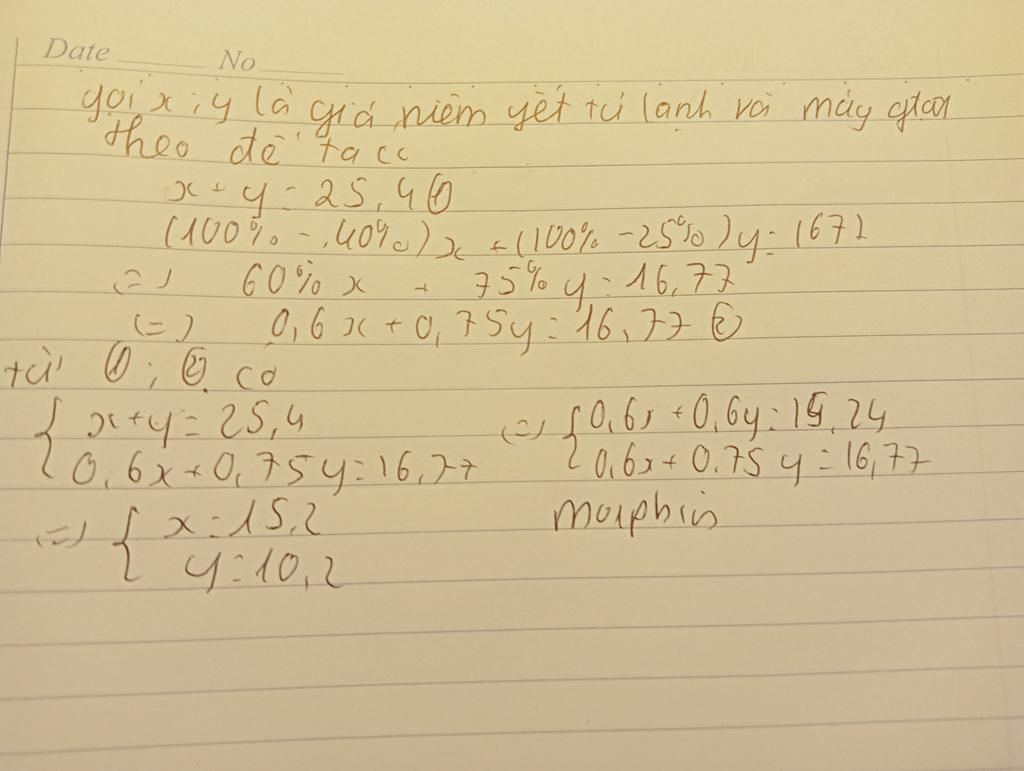 Date No
gọi x; y là giá niêm yết tủ lạnh và máy giặt
theo đề ta cc
x + y = 25,4 ①
(100% - 40%)x + (100% - 25%)y = 1672
(=) 60% x + 75% y = 16,77
(=) 0,6x + 0,75y = 16,77 ②
từ ①; ② có
{ x+y = 25,4 (=) { 0,6x + 0,6y = 15,24
0,6x + 0,75y = 16,77 0,6x + 0.75 y = 16,77
(=) { x = 15,2 morphin
y = 10,2